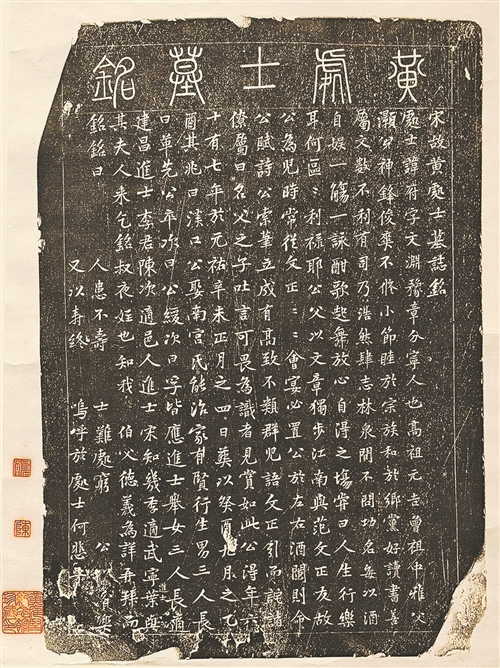 黃處士墓銘
宋故黃處士墓誌銘
處士諱府字文淵豫章分寧人也高祖元吉曾祖中雅父
灝公神鋒俊爽不脩小節睦於宗族和於鄉黨好讀書喜
屬文數不利有司乃浩然肆志林泉間不問功名每以酒
自娛一觴一詠酣歌起舞放心自得之場常曰人生行樂
耳何區〻利祿耶公父以文章獨步江南與范文正友故
公為兒時常從文正〻〻會宴必置公於左右酒闌則命
公賦詩公索筆立成有高致不類群兒語文正引而誇諸
僚屬曰名父之子吐言可畏為識者見賞如此公得年六
十有七年於元祐辛未正月之四日葬以癸酉九月之乙
酉其兆曰漢口公娶南宮氏能治家有賢行生男三人長
曰革先公卒次曰公綬次曰孚皆應進士舉女三人長適
建昌進士李君陳次適邑人進士宋知幾季適武寧進士葉與
其夫人來乞銘叔夜姪也知我伯父德義為詳再拜而
銘銘曰
人患不壽 士難處窮 公
又以壽終 嗚呼於處士何悲